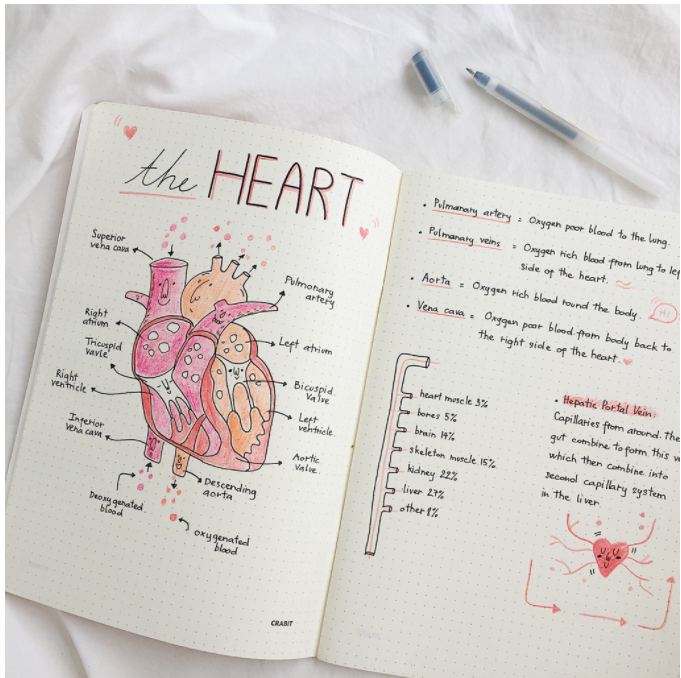 the HEART
Superior
vena cava
Pulmonary
artery
Right
atrium
Left atrium
Tricuspid
vavle
Right
ventricle
Bicuspid
Valve
Left
ventricle
Inferior
vena cava
Aortic
valve
Descending
aorta
Deoxygenated
blood
oxygenated
blood
CRABIT
• Pulmanary artery = Oxygen poor blood to the lung.
• Pulmanary veins = Oxygen rich blood from lung to lef
side of the heart.
• Aorta = Oxygen rich blood round the body.
Hi!
• Vena cava = Oxygen poor blood from body back to
the right side of the heart.
heart muscle 3%
bones 5%
brain 14%
skeleton muscle 15%
kidney 22%
liver 27%
other 8%
• Hepatic Portal Vein:
Capillaries from around. The
gut combine to form this v
which then combine into
second capillary system
in the liver